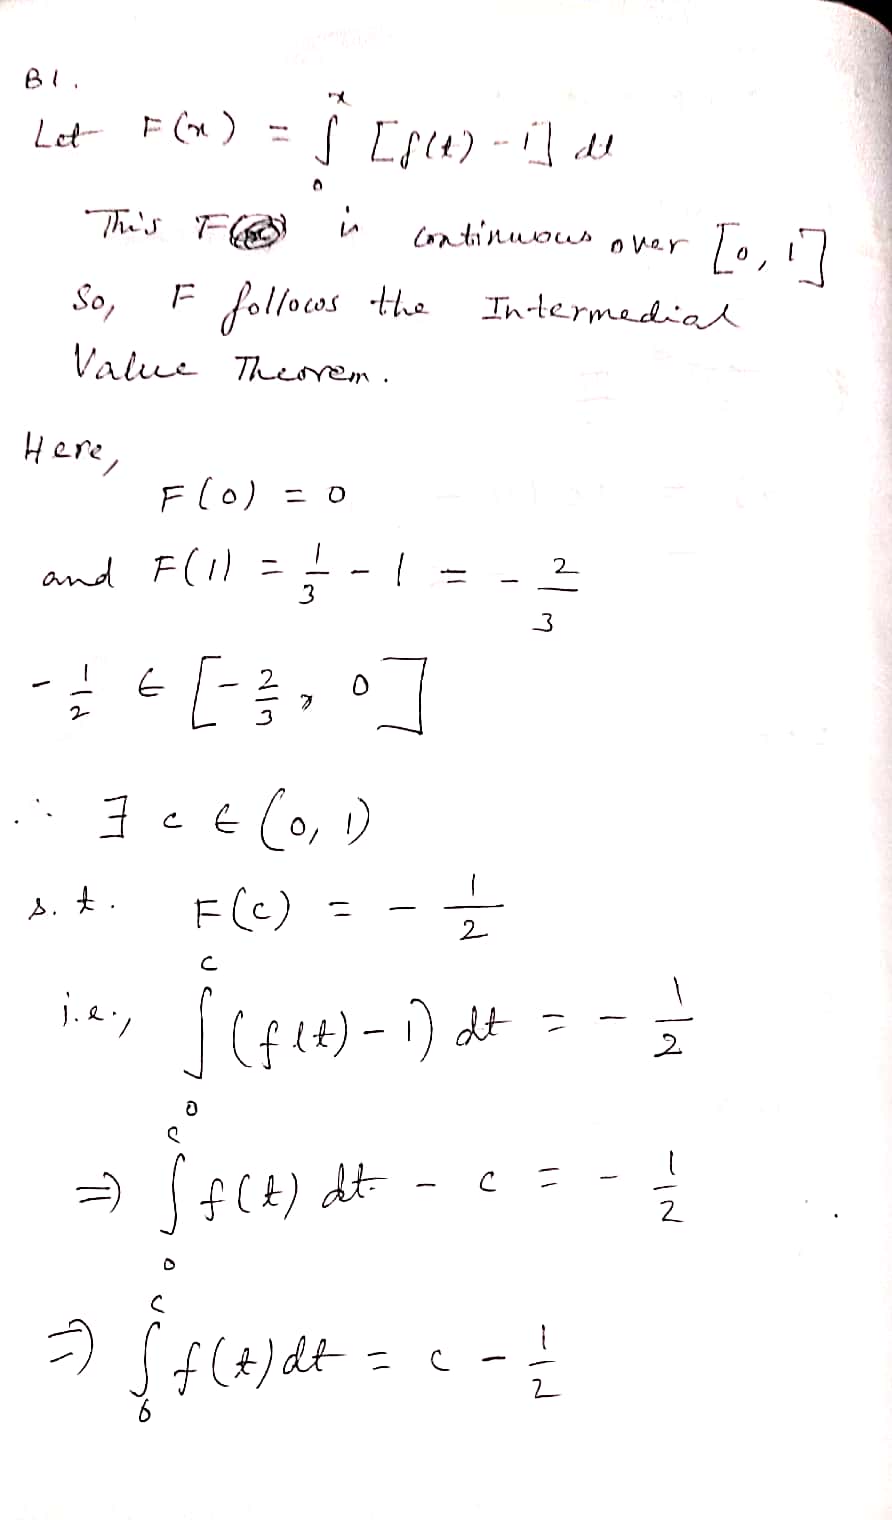 B1.
Let F(x) = ∫₀ˣ [f(t) - 1] dt
This F is continuous over [0, 1]
So, F follows the Intermedial
Value Theorem.
Here,
F(0) = 0
and F(1) = 1/3 - 1 = - 2/3
- 1/2 ∈ [- 2/3, 0]
∴ ∃ c ∈ (0, 1)
s.t. F(c) = - 1/2
i.e., ∫₀ᶜ (f(t) - 1) dt = - 1/2
⇒ ∫₀ᶜ f(t) dt - c = - 1/2
⇒ ∫₀ᶜ f(t) dt = c - 1/2